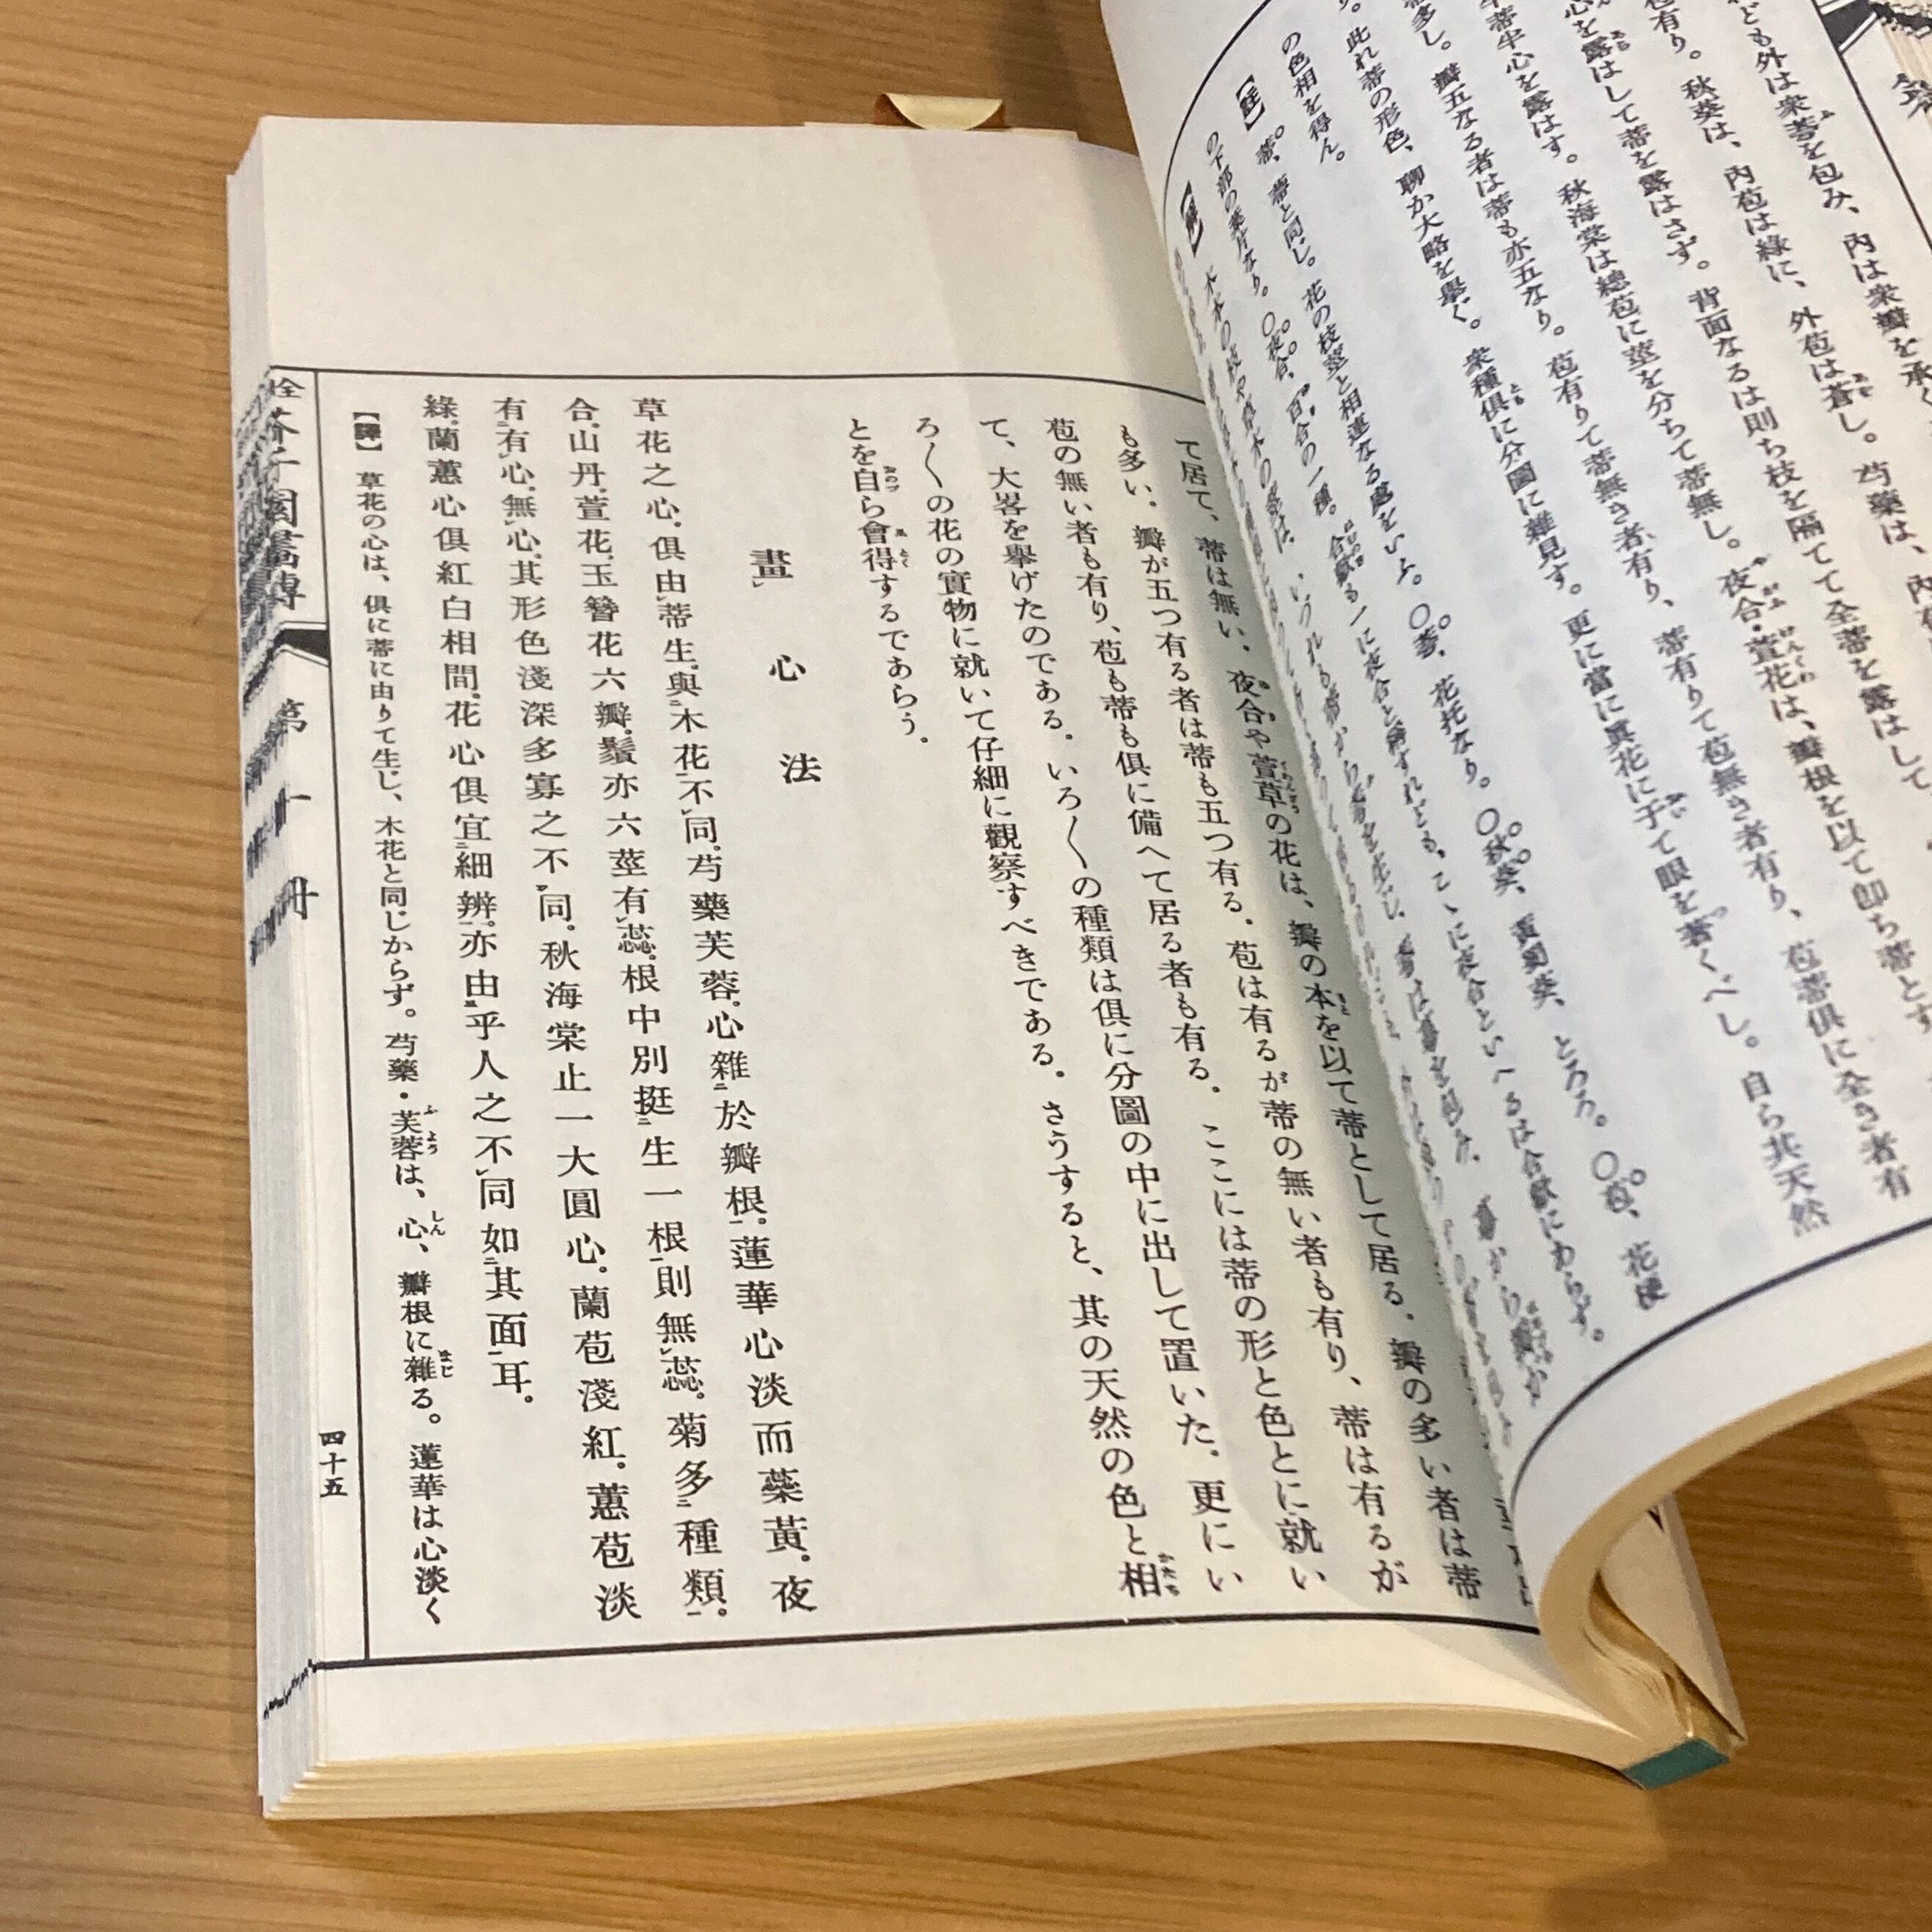 ども外は衆蕚を包み、内は衆瓣を承く
色有り。秋葵は、内苞は綠に、外苞は蒼し。芍藥は、內
心を露はして蒂を露はさず。背面なるは則ち枝を隔てて全蒂を露はして
半蒂半心を露はす。秋海棠は總苞に莖を分ちて蒂無し。夜合・萱花は、瓣根を以て卽ち蒂とす
多し。瓣五なる者は蒂も亦五なり。苞有りて蒂無き者有り、蒂有りて苞無き者有り、苞蒂俱に全き者有
り。此れ蒂の形色、聊か大略を擧ぐ。衆種俱に分圖に雜見す。更に當に眞花に于て眼を著くべし。自ら其天然
の色相を得ん。
【註】蒂、蔕と同じ。花の枝莖と相連なる處をいふ。〇蕚、花托なり。〇秋葵、黃蜀葵、とろろ。〇苞、花梗
の下部の葉片なり。〇夜合、百合の一種。合歡も一に夜合と稱すれども、こゝに夜合といへるは合歡にあらず。
て居て、蒂は無い。夜合や萱草の花は、瓣の本を以て蒂として居る。瓣の多い者は蒂
も多い。瓣が五つ有る者は蒂も五つ有る。苞は有るが蒂の無い者も有り、蒂は有るが
苞の無い者も有り、苞も蒂も俱に備へて居る者も有る。ここには蒂の形と色とに就い
て、大畧を擧げたのである。いろ〱の種類は俱に分圖の中に出して置いた。更にい
ろ〱の花の實物に就いて仔細に觀察すべきである。さうすると、其の天然の色と相
とを自ら會得するであらう。
畫心法
草花之心。俱由蒂生。與木花不同。芍藥芙蓉。心雜於瓣根。蓮華心淡而蘂黃。夜
合。山丹。萱花。玉簪花六瓣。鬚亦六莖有蕊。根中別挺生一根則無蕊。菊多種類。
有有心。無心。其形色淺深多寡之不同。秋海棠止一大圓心。蘭苞淺紅。蕙苞淡
綠。蘭蕙心俱紅白相間。花心俱宜細辨。亦由乎人之不同如其面耳。
【譯】草花の心は、俱に蒂に由りて生じ、木花と同じからず。芍藥・芙蓉は、心、瓣根に雜る。蓮華は心淡く
四十五
芥子園畫傳
第十一册